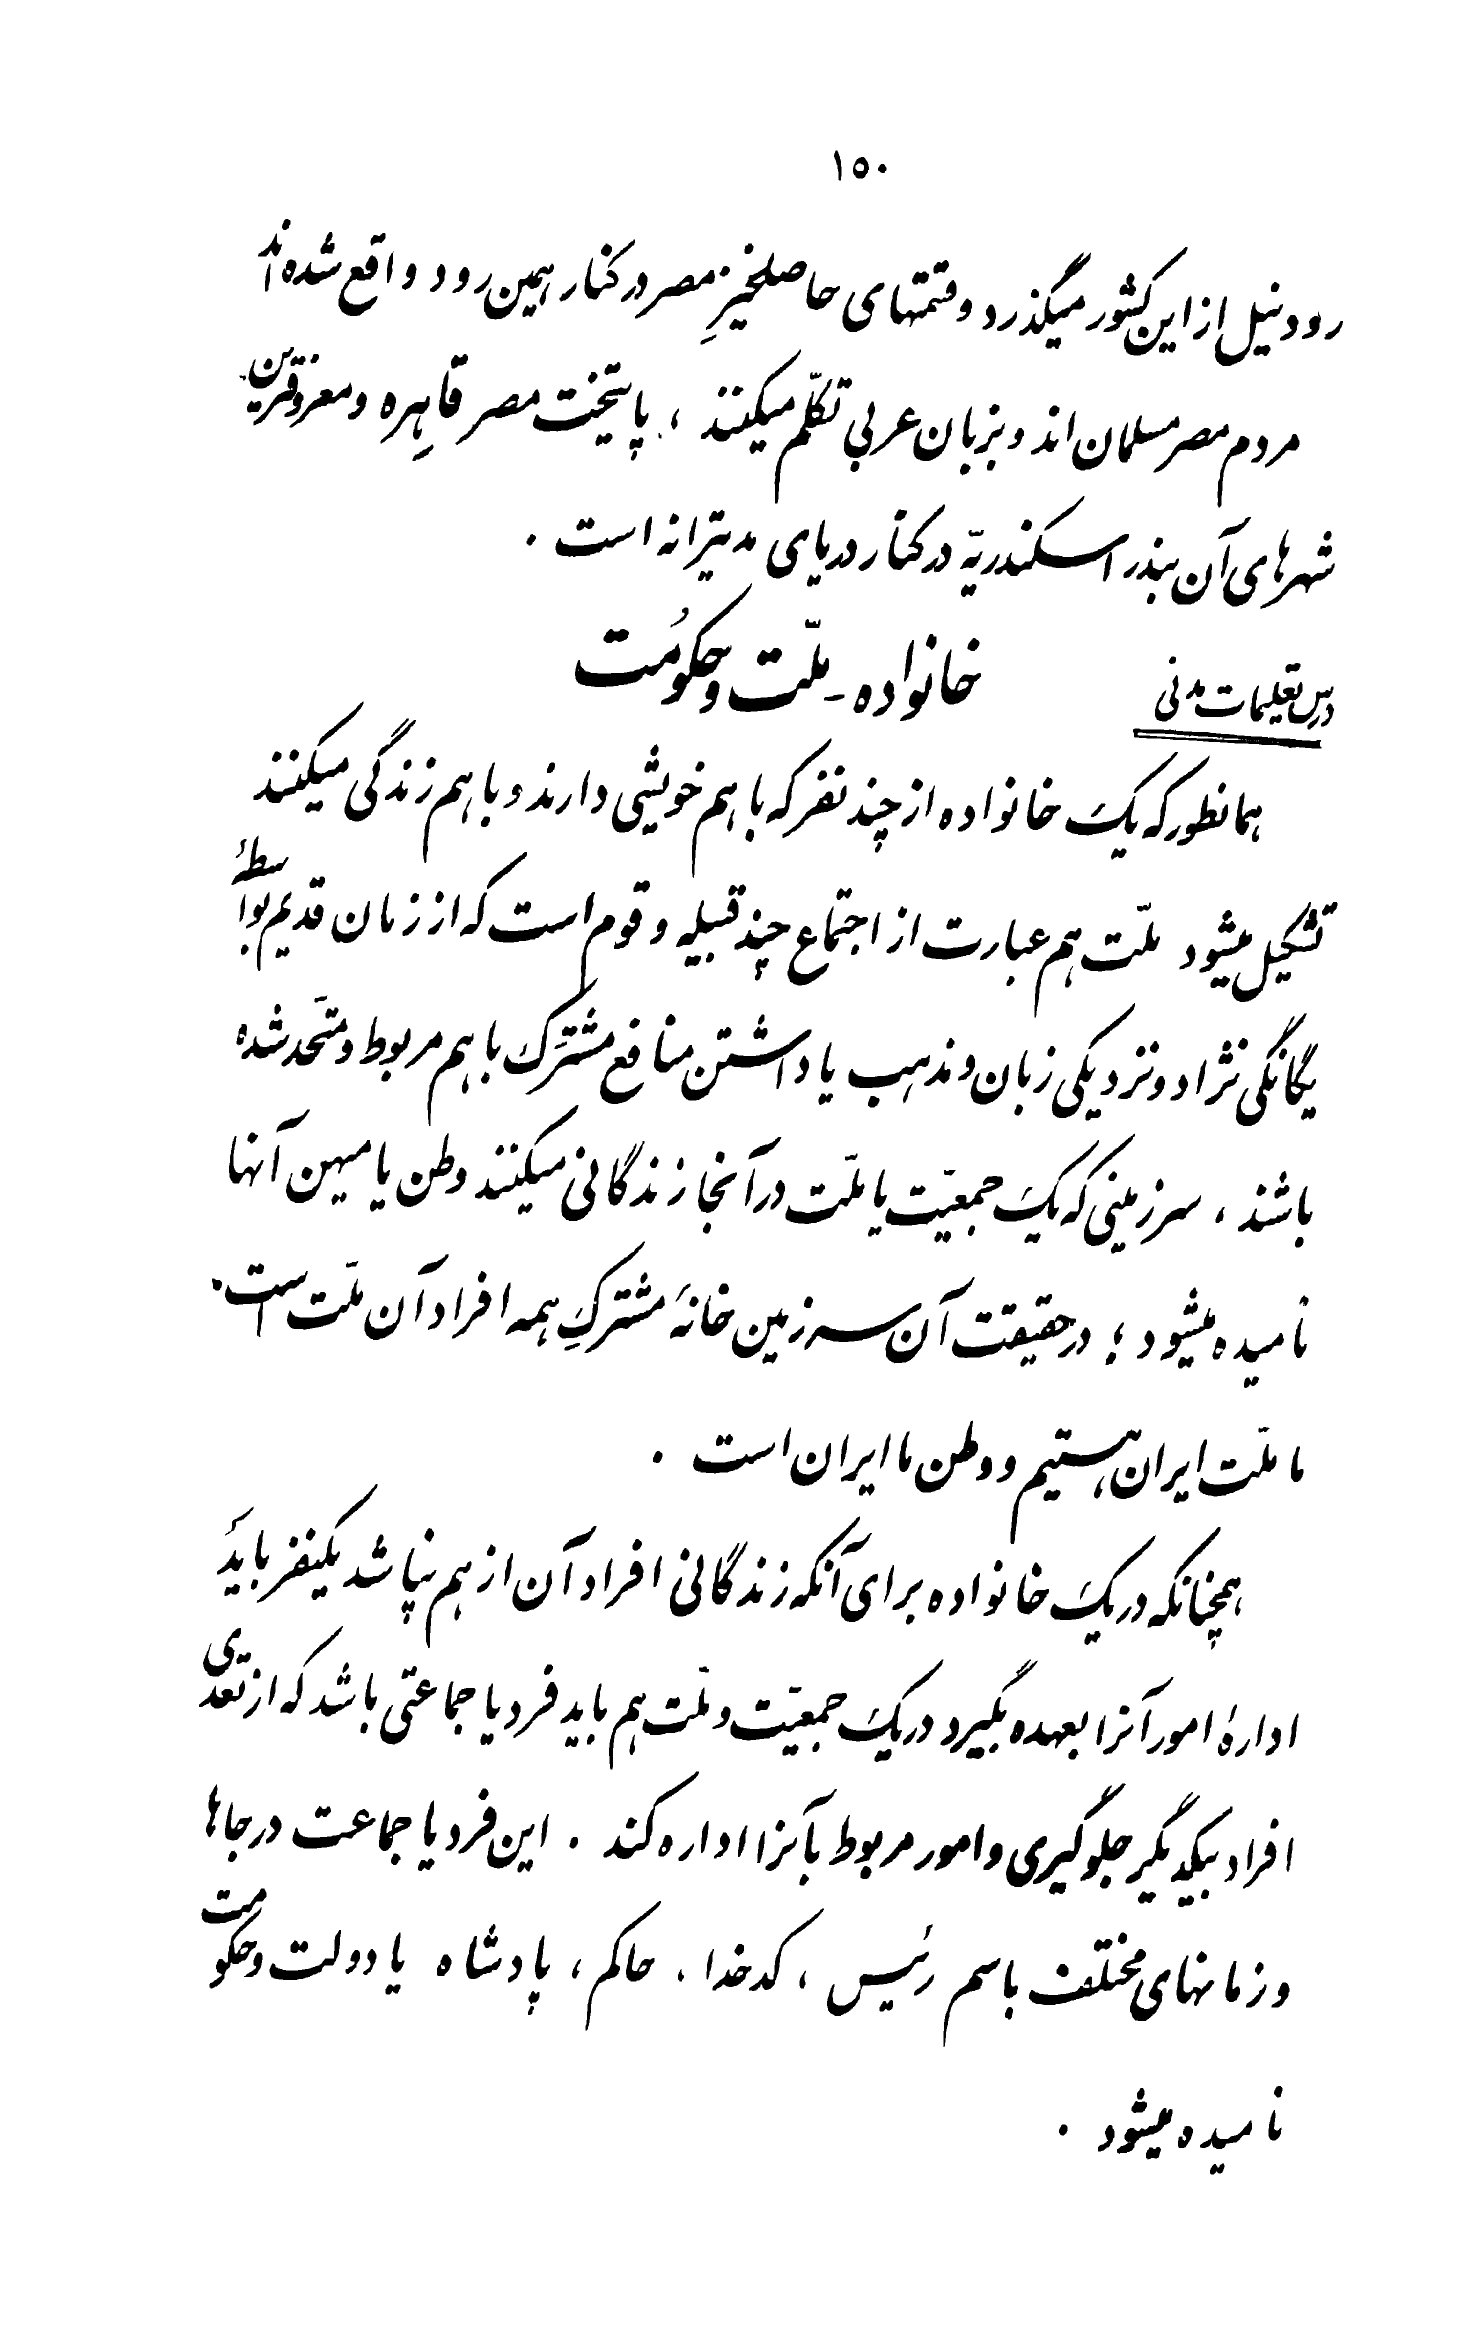 ۱۵۰
رود نیل از این کشور میگذرد و قسمتهای حاصلخیزِ مصر در کنار همین رود واقع شده‌اند
مردم مصر مسلمان‌اند و بزبان عربی تکلّم میکنند ، پایتخت مصر قاهِره و معروفترین
شهرهای آن بندر اسکندریّه در کنار دریای مدیترانه است .
درس تعلیمات مدنی
خانواده - ملّت و حکوُمت
همانطور که یک خانواده از چند نفر که با هم خویشی دارند و با هم زندگی میکنند
تشکیل میشود ملّت هم عبارت از اجتماع چند قبیله و قوم است که از زمان قدیم بواسطهٔ
یگانگی نژاد و نزدیکی زبان و مذهب یا داشتن منافع مشترَک با هم مربوط و متّحد شده
باشند ، سرزمینی که یک جمعیّت یا ملّت در آنجا زندگانی میکنند وطن یا میهن آنها
نامیده میشود ؛ در حقیقت آن سرزمین خانهٔ مشترکِ همه افراد آن ملّت است .
ما ملّت ایران هستیم و وطن ما ایران است .
همچنانکه در یک خانواده برای آنکه زندگانی افراد آن از هم نپاشد یکنفر باید
ادارهٔ امور آنرا بعهده بگیرد در یک جمعیّت و ملّت هم باید فرد یا جماعتی باشد که از تعدی
افراد بیکدیگر جلوگیری و امور مربوط بآنرا اداره کند . این فرد یا جماعت در جاها
و زمانهای مختلف باسم رئیس ، کدخدا ، حاکم ، پادشاه یا دولت و حکومت
نامیده میشود .